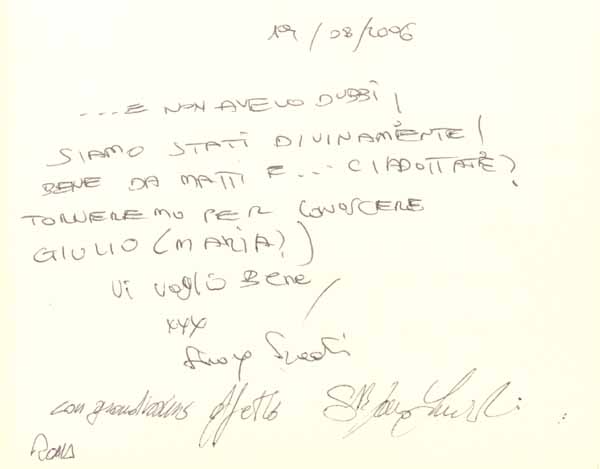 19/08/2006
....E NON AVEVO DUBBI!
SIAMO STATI DIVINAMENTE!
BENE DA MATTI E... CI ADOTTATE?
TORNEREMO PER CONOSCERE
GIULIO (MARIA?)
Vi voglio Bene
xxx
con grandissimo affetto
ROMA